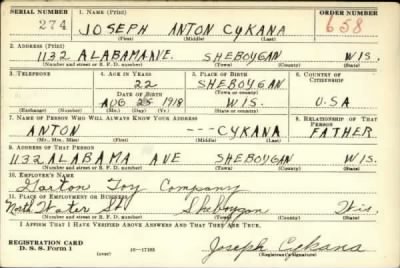 SERIAL NUMBER 1. NAME (Print) ORDER NUMBER
274 JOSEPH ANTON CYKANA 658
(First) (Middle) (Last)
2. ADDRESS (Print)
1132 ALABAMA AVE. SHEBOYGAN WIS.
(Number and street or R. F. D. number) (Town) (County) (State)
3. TELEPHONE 4. AGE IN YEARS 5. PLACE OF BIRTH 6. COUNTRY OF CITIZENSHIP
22 SHEBOYGAN
(Town or county)
DATE OF BIRTH
AUG 25 1918 WIS. USA
(Exchange) (Number) (Mo.) (Day) (Yr.) (State or country)
7. NAME OF PERSON WHO WILL ALWAYS KNOW YOUR ADDRESS 8. RELATIONSHIP OF THAT PERSON
ANTON --- CYKANA FATHER
(Mr., Mrs., Miss) (First) (Middle) (Last)
9. ADDRESS OF THAT PERSON
1132 ALABAMA AVE SHEBOYGAN WIS.
(Number and street or R. F. D. number) (Town) (County) (State)
10. EMPLOYER'S NAME
Garton Toy Company
11. PLACE OF EMPLOYMENT OR BUSINESS
North Water St Sheboygan Wis.
(Number and street or R. F. D. number) (Town) (County) (State)
I AFFIRM THAT I HAVE VERIFIED ABOVE ANSWERS AND THAT THEY ARE TRUE.
REGISTRATION CARD
D. S. S. Form 1 (over) 16-17105 Joseph Cykana
(Registrant's signature)